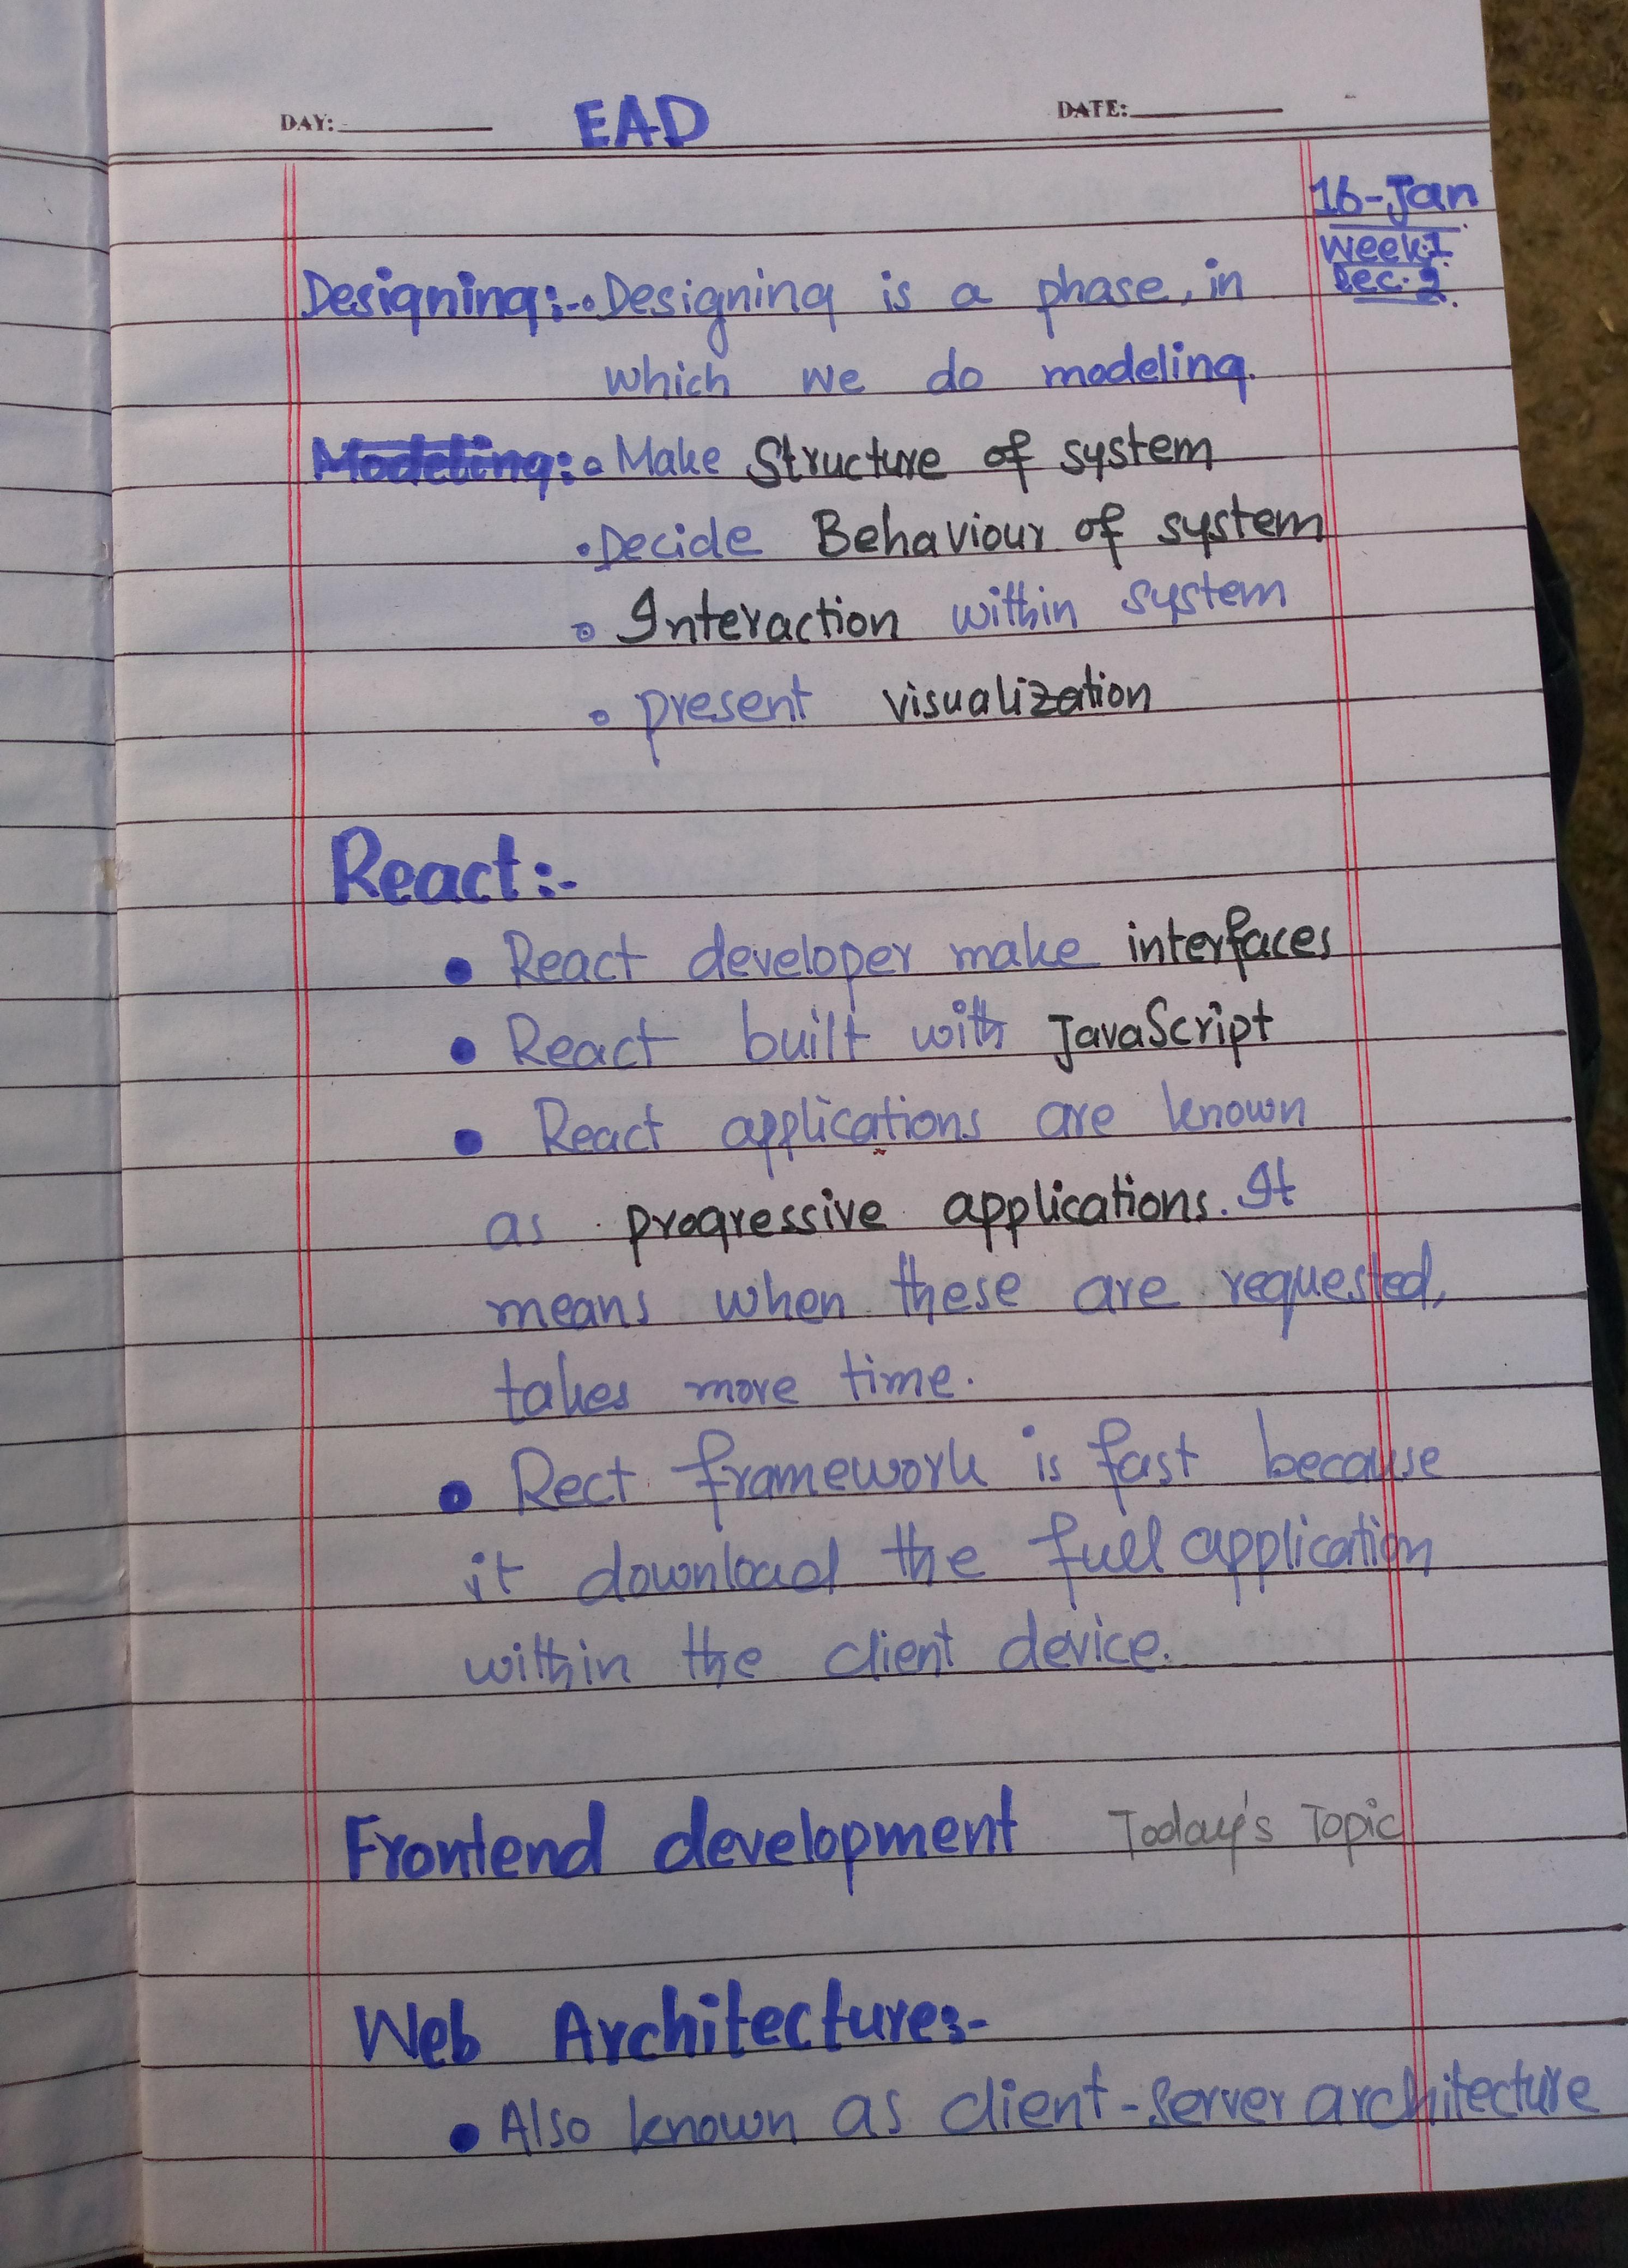 DAY: EAD DATE:
16-Jan
Week:1
Lec:2
Designing:- • Designing is a phase, in
which we do modeling.
Modeling: • Make Structure of system
• Decide Behaviour of system
• Interaction within system
• present visualization
React:-
• React developer make interfaces
• React built with JavaScript
• React applications are known
as progressive applications. It
means when these are requested,
takes more time.
• Rect framework is fast because
it download the full application
within the client device.
Frontend development Today's Topic
Web Architecture:-
• Also known as client-server architecture